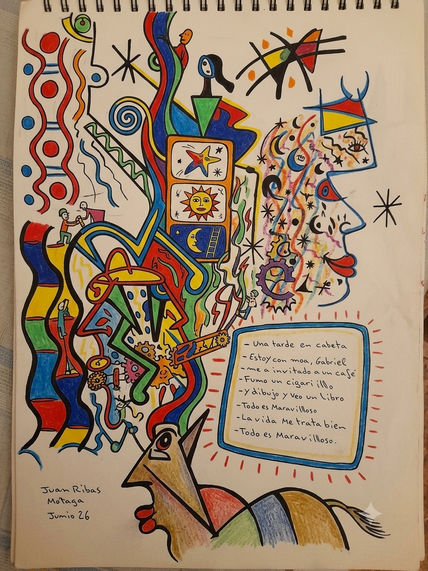 - Una tarde en cabeta
- Estoy con moa, Gabriel
- me a invitado a un café
- Fumo un cigarillo
- y dibujo y veo un Libro
- Todo es Maravilloso
- La vida Me trata bien
- Todo es Maravilloso.
Juan Ribas
Motaga
Junio 26